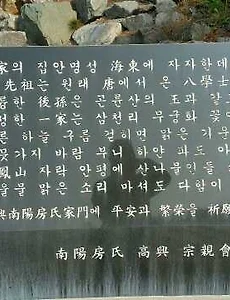 家의 집안명성 海東에 자자한데
先祖는 원래 唐에서 온 八學士
륭한 後孫은 곤륜산의 玉과 같고
성한 一家는 삼천리 무궁화 꽃이
른 하늘 구름 걷히면 맑은 기운
꽃가지 바람 부니 하얀 파도
鳳山 자락 안평에 산나물인들
울물 맑은 소리 마셔도 다함이
興南陽房氏家門에 平安과 繁榮을 祈願
南陽房氏 高興 宗親會